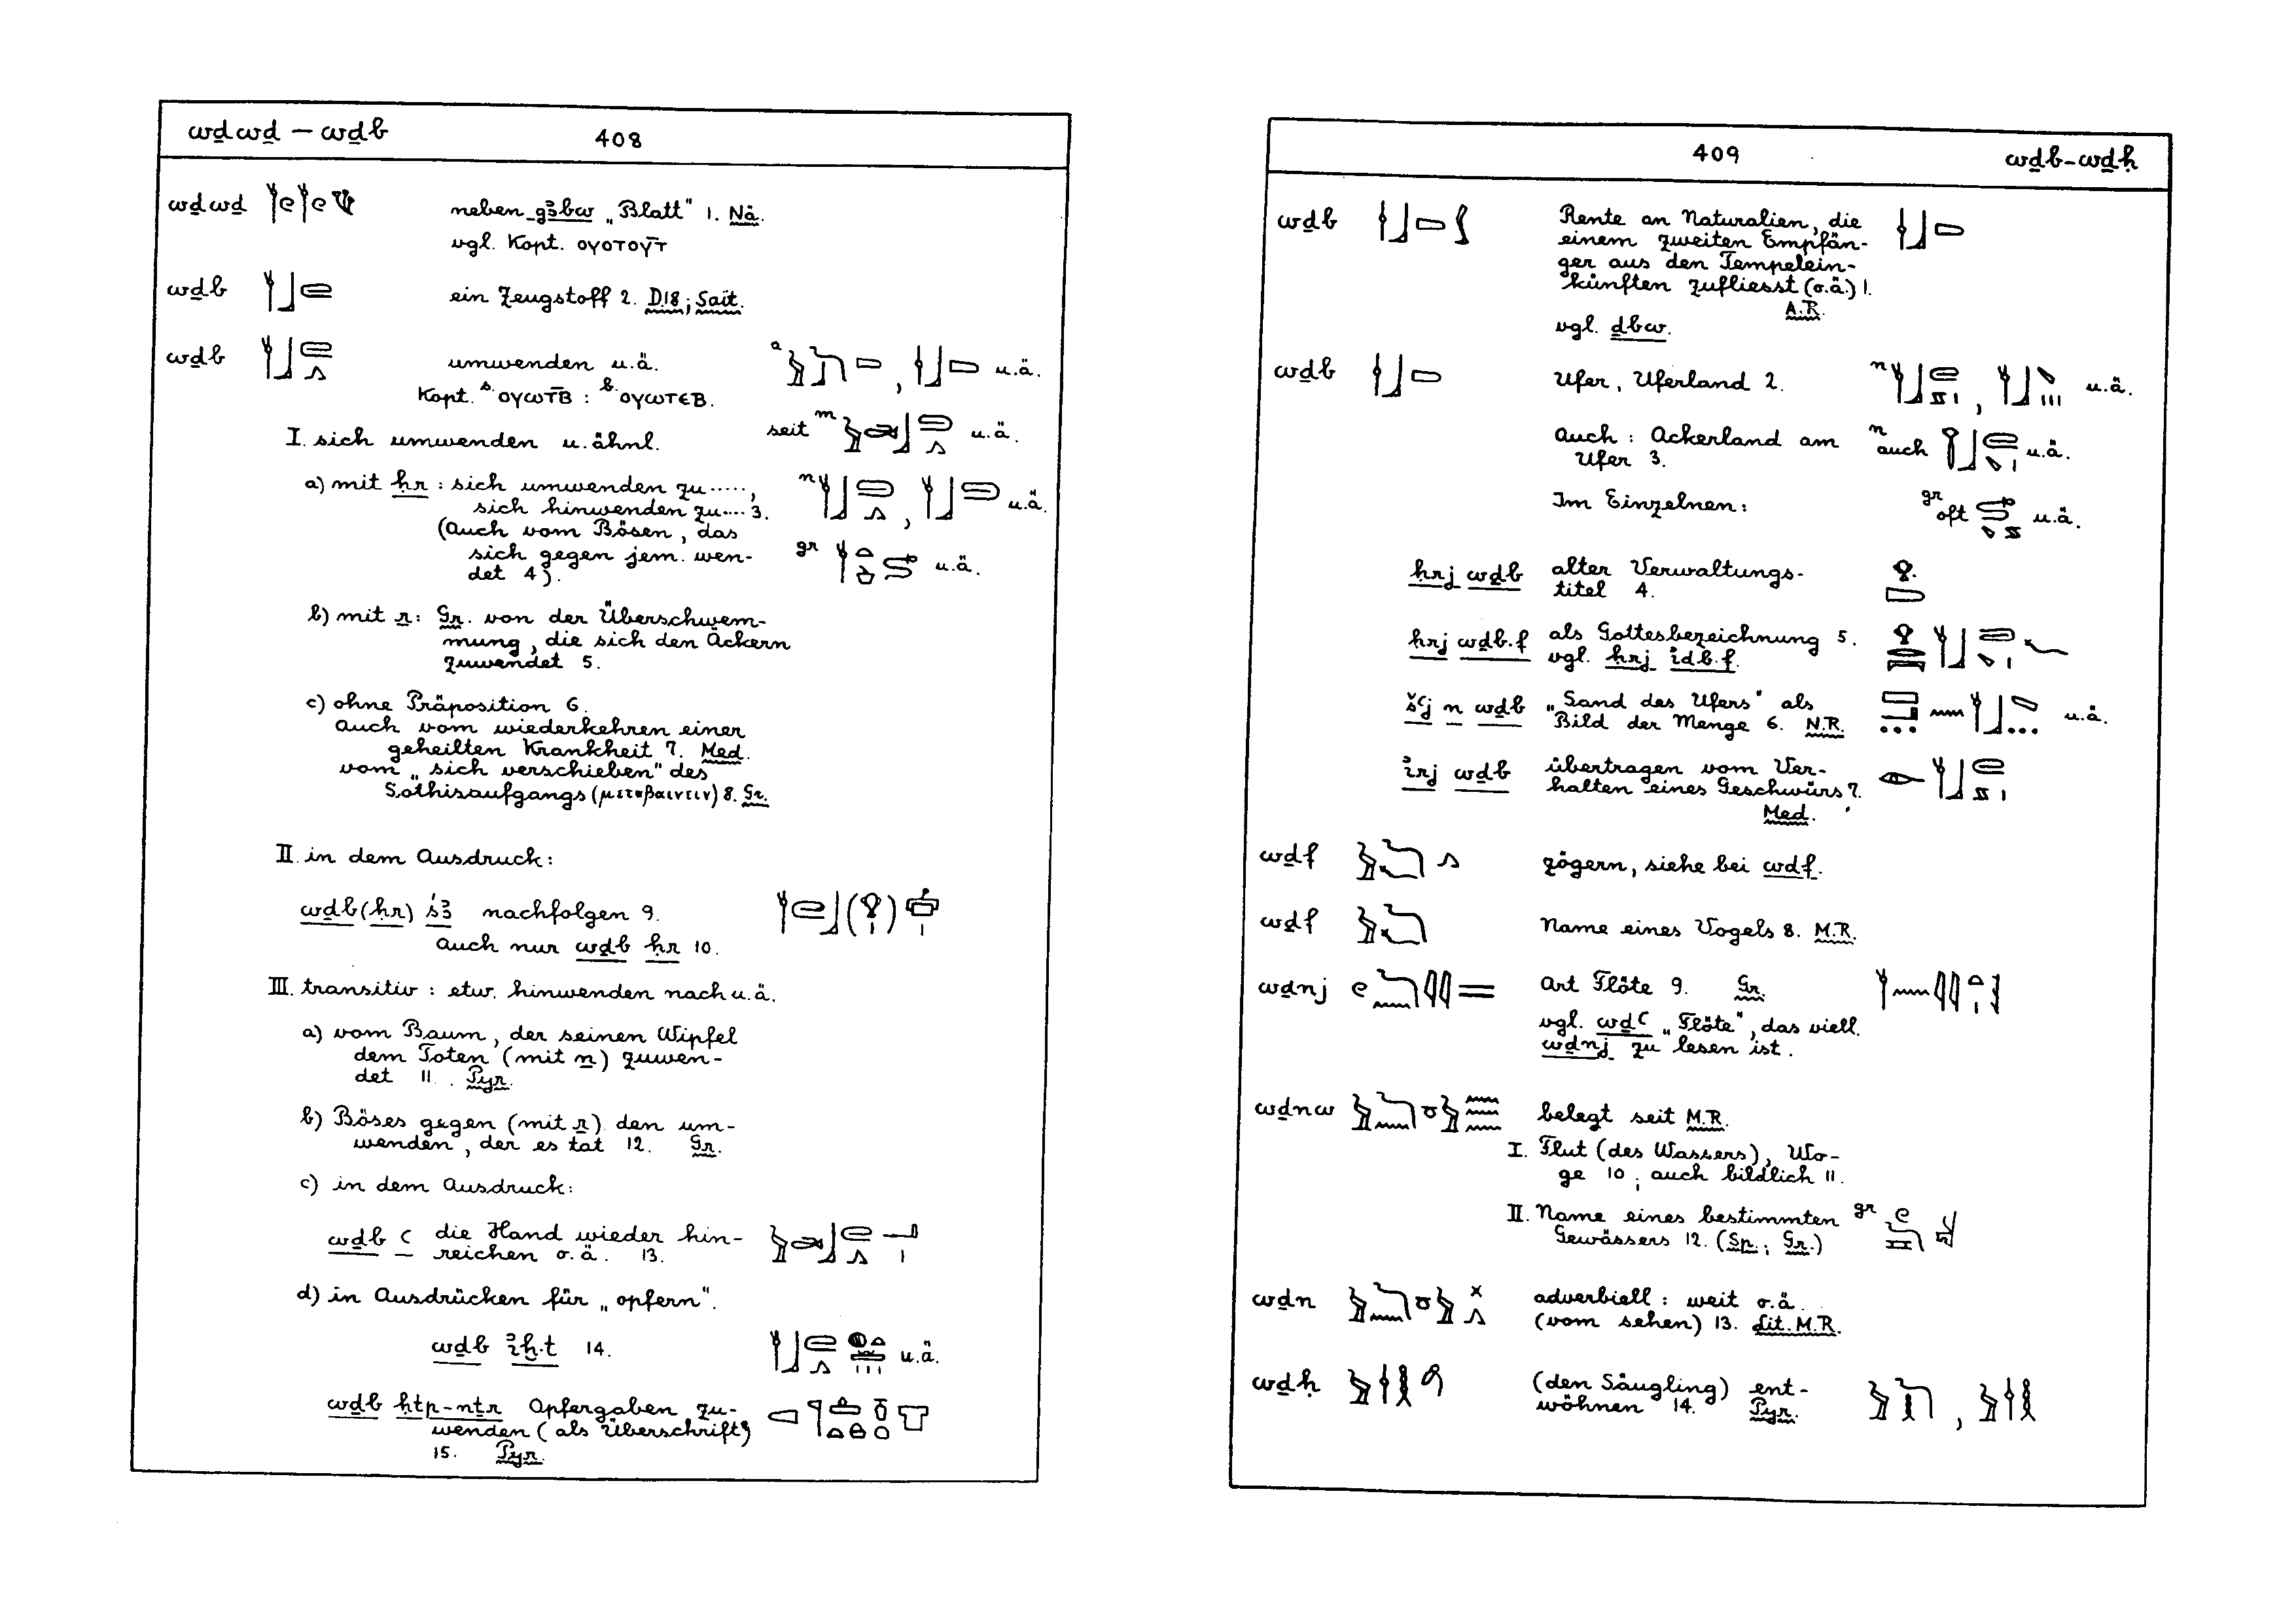 wḏwḏ – wḏb 408
wḏwḏ neben gꜣbw „Blatt" 1. Nä.
vgl. Kopt. ⲟⲩⲟⲧⲟⲩⲧ̄
wḏb ein Zeugstoff 2. D.18; Sait.
wḏb umwenden u.ä. a , u.ä.
Kopt. s. ⲟⲩⲱⲧⲃ̄ : b. ⲟⲩⲱⲧⲉⲃ.
I. sich umwenden u. ähnl. seit m u.ä.
a) mit ḥr : sich umwenden zu ....., n , u.ä.
sich hinwenden zu .... 3.
(Auch vom Bösen, das
sich gegen jem. wen- gr u.ä.
det 4).
b) mit r : Gr. von der Überschwem-
mung, die sich den Äckern
zuwendet 5.
c) ohne Präposition 6.
auch vom wiederkehren einer
geheilten Krankheit 7. Med.
vom „sich verschieben" des
Sothisaufgangs (μεταβαινειν) 8. Gr.
II. in dem Ausdruck:
wḏb (ḥr) śꜣ nachfolgen 9.
auch nur wḏb ḥr 10.
III. transitiv : etw. hinwenden nach u.ä.
a) vom Baum, der seinen Wipfel
dem Toten (mit n) zuwen-
det 11. Pyr.
b) Böses gegen (mit r) den um-
wenden, der es tat 12. Gr.
c) in dem Ausdruck:
wḏb ꜥ die Hand wieder hin-
reichen o.ä. 13.
d) in Ausdrücken für „opfern".
wḏb iꜣḫ.t 14. u.ä.
wḏb ḥtp-nṯr Opfergaben zu-
wenden (als Überschrift)
15. Pyr.
409 wḏb – wḏḥ
wḏb Rente an Naturalien, die
einem zweiten Empfän-
ger aus den Tempelein-
künften zufliesst (o.ä.) 1.
A.R.
vgl. ḏbw.
wḏb Ufer, Uferland 2. n , u.ä.
Auch : Ackerland am n auch u.ä.
Ufer 3.
Im Einzelnen: gr oft u.ä.
ḥrj wḏb alter Verwaltungs-
titel 4.
ḥrj wḏb.f als Gottesbezeichnung 5.
vgl. ḥrj idb.f.
šꜥj n wḏb „Sand des Ufers" als
Bild der Menge 6. N.R. u.ä.
irj wḏb übertragen vom Ver-
halten eines Geschwürs 7.
Med.
wḏf zögern, siehe bei wdf.
wḏf Name eines Vogels 8. M.R.
wḏnj Art Flöte 9. Gr.
vgl. wḏꜥ „Flöte", das viell.
wḏnj zu lesen ist.
wḏnw belegt seit M.R.
I. Flut (des Wassers), Wo-
ge 10; auch bildlich 11.
II. Name eines bestimmten gr
Gewässers 12. (Sp.; Gr.)
wḏn adverbiell : weit o.ä.
(vom sehen) 13. Lit. M.R.
wḏḥ (den Säugling) ent- ,
wöhnen 14. Pyr.